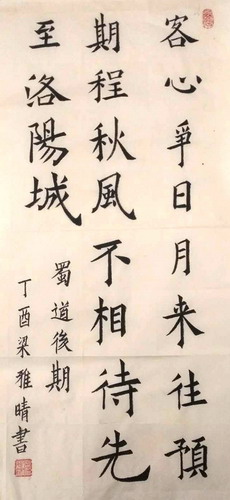 客心爭日月来往預
期程秋風不相待先
至洛陽城
蜀道後期
丁酉梁雅晴書